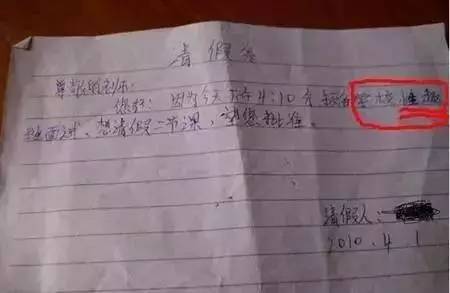 请假条
尊敬的老师:
您好!因为今天下午4:10分我在学校性趣
班面试,想请假二节课,望您批准。
请假人:
2010.4.1